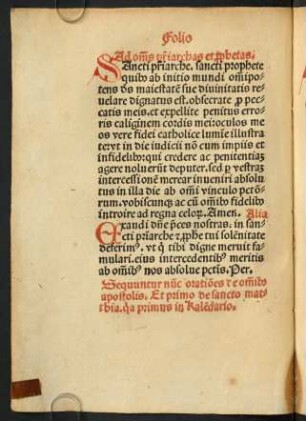 Folio
Ad om̄s pr̄iarchas et ꝓphetas.
Sancti pr̄iarche. sancti prophete
quibꝰ ab initio mundi om̄ipo-
tens dn̄s maiestatē sue diuinitatis re
uelare dignatus est. obsecrate ꝓ pec
catis meis. et expellite penitus erro-
ris caliginem cordis mei: oculos me
os vere fidei catholice lumīe illustra
te: vt in die iudicii nō cum impiis et
infidelibꝰ: qui credere ac penitentiā
agere noluerūt deputer. sed ꝑ vestrā
intercessionē merear inueniri absolu
tus in illa die ab om̄i vinculo pctō-
rum. vobiscumqꝫ ac cū om̄ibꝰ fidelibꝰ
introire ad regna celoꝝ. Amen. Alia
Exaudi dn̄e p̄ces nostras: in san-
cti pr̄iarche ⁊ ꝓphe tui solēnitate
deferimꝰ. vt qͥ tibi digne meruit fa-
mulari. eius intercedentibꝰ meritis
ab om̄ibꝰ nos absolue pctis. Per.
Sequuntur nūc oratiōes de om̄ibꝰ
apostolis. Et primo de sancto mat-
thia. qꝛ primus in Kalēdario.